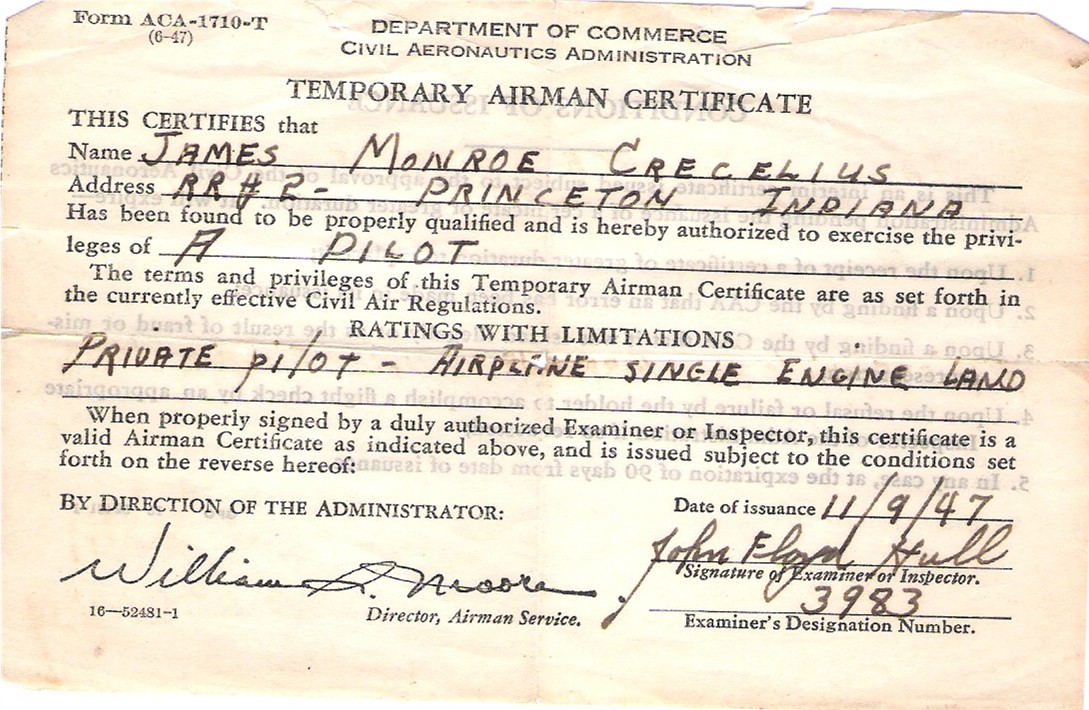 Form ACA-1710-T
(6-47)
DEPARTMENT OF COMMERCE
CIVIL AERONAUTICS ADMINISTRATION
TEMPORARY AIRMAN CERTIFICATE
THIS CERTIFIES that
Name JAMES MONROE CRECELIUS
Address RR#2- PRINCETON INDIANA
Has been found to be properly qualified and is hereby authorized to exercise the privi-
leges of A PILOT
The terms and privileges of this Temporary Airman Certificate are as set forth in
the currently effective Civil Air Regulations.
RATINGS WITH LIMITATIONS
PRIVATE pilot - AIRPLANE SINGLE ENGINE LAND
When properly signed by a duly authorized Examiner or Inspector, this certificate is a
valid Airman Certificate as indicated above, and is issued subject to the conditions set
forth on the reverse hereof:
BY DIRECTION OF THE ADMINISTRATOR:
Date of issuance 11/9/47
William S. Moore
John Floyd Hull
Signature of Examiner or Inspector.
3983
16—52481-1
Director, Airman Service.
Examiner's Designation Number.